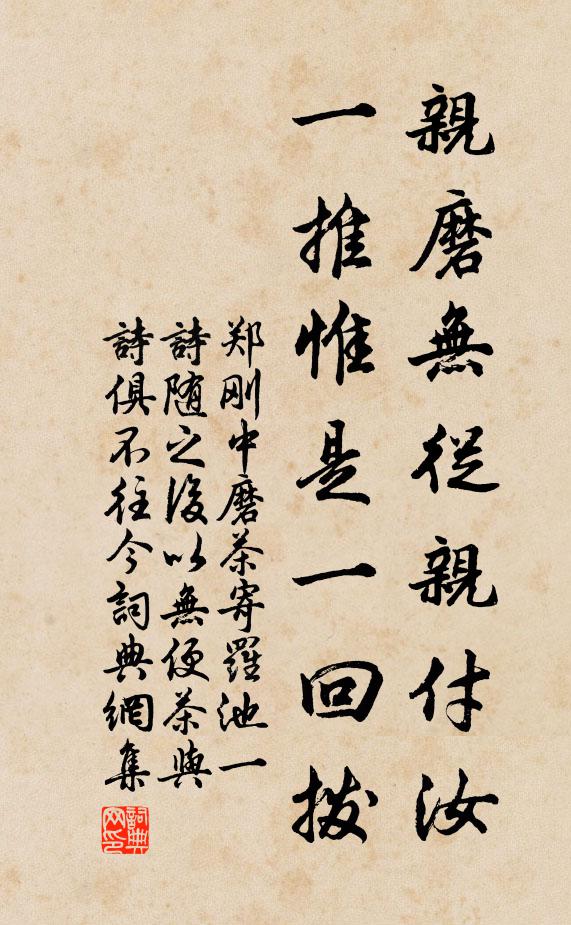 親磨無從親付汝
一推惟是一回拨
郑刚中磨茶寄羅池一
詩随之後以無便茶與
詩俱不往今詞典網集
詞典網印